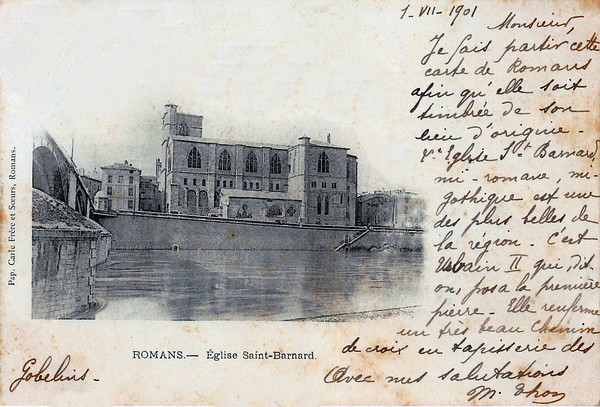 1-VII-1901
Monsieur,
Je fais partir cette
carte de Romans
afin qu'elle soit
timbrée de son
lieu d'origine -
Église St Barnard,
mi-romane, mi-
gothique est une
des plus belles de
la région. C'est
Urbain II qui, dit-
on, posa la première
pierre. Elle renferme
un très beau Chemin
de croix en tapisserie des
Gobelins.
Avec mes salutations
M.
Pap. Carle Frère et Sœurs, Romans.
ROMANS. — Église Saint-Barnard.